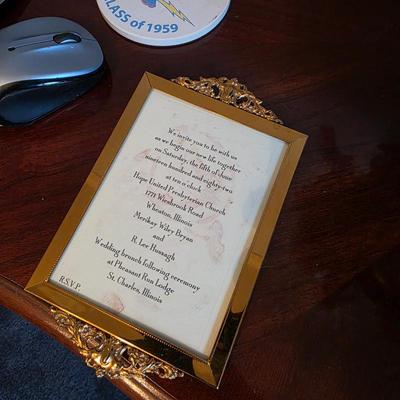 CLASS of 1959
We invite you to be with us
as we begin our new life together
on Saturday, the fifth of June
nineteen hundred and eighty-two
at ten o'clock
Hope United Presbyterian Church
1771 Wiesbrook Road
Wheaton, Illinois
Merikay Wiley Bryan
and
R. Lee Hussagh
Wedding brunch following ceremony
at Pheasant Run Lodge
St. Charles, Illinois
R.S.V.P.